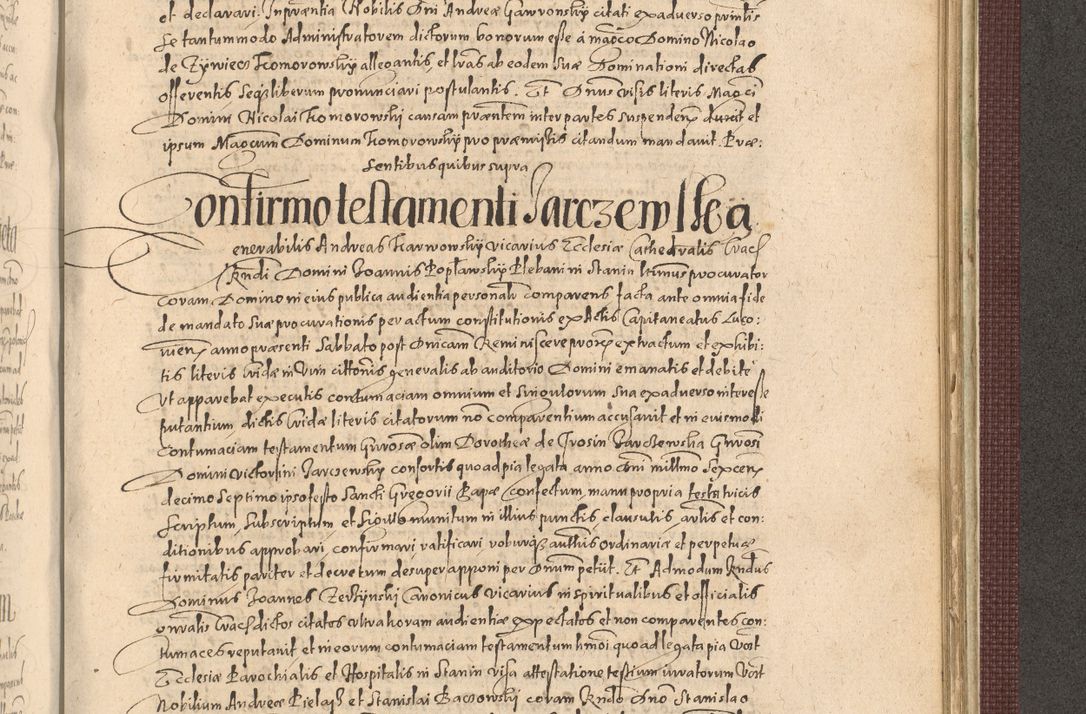 et declarari. In præntia Nobilis Dni Andreæ Gawronskij citati ex adverso printis
se tantummodo Administratorem dictorum bonorum esse à magco Domino Nicolao
de Zÿwiecz Komorowskÿ allegantis, et lras ab eodem suæ Dominationi directas
offerentis seqz liberum pronunciari postulantis. Et Dnus visis literis Magci
Domini Nicolai Komorowskij causam præntem inter partes suspenden duxit et
ipsum Magcum Dominum Komorowskij pro præmissis citandum mandavit. Præ:
sentibus quibus supra
Confirmo testamenti Jarczewska
Venerabilis Andreas Karwowskij vicarius Ecclesiæ Cathedralis Crac
Rndi Domini Joannis Popławskij Plebani in Stanin ltimus procurator
coram Domino in eius publica audientia personalr comparens facta ante omnia fide
de mandato suæ procurationis per actum constitutionis ex Actis Capitaneatus Luco:
vien anno præsenti Sabbato post Dnicam Reminiscere prox extractum et exhibi:
tis literis Cridæ in vim cittonis generalis ab auditorio Domini emanatis et debite
ut apparebat executis contumaciam omnium et singulorum sua ex adverso interesse
putantium dictis Cridæ literis citatorum nō comparentium accusavit et in eiusmodi
contumaciam testamentum Gnrosæ olim Dorotheæ de Jrosin Jarczewska Gnrosi
Domini Victorini Jarczewskij consortis quoad pia legata anno Dni millmo sexcen
decimo septimo ipso festo Sancti Gregorii Papæ confectum, manu propria testatricis
scriptum, subscriptum et sigillo munitum in illius punctis, clausulis, artis et con:
ditionibus approbari, confirmari, ratificari roburqz authtis ordinariæ et perpetuæ
firmitatis pariter et decretum desuper apponi per Dnum petiit. Et Admodum Rndus
Dominus Joannes Zerzÿnski Canonicus vicarius in spiritualibus et officialis
gnralis Crac dictos citatos ultra horam audientiæ expectatos et non comparentes con:
tumaces reputavit et in eorum contumaciam testamentum hmōi quoad legata pia
Ecclesiæ Parochialis et Hospitalis in Stanin visa attestatione testium iuratorum
Nobilium Andreæ Pielasz et Stanislai Baczowskij coram Rndo Dno Stanislao